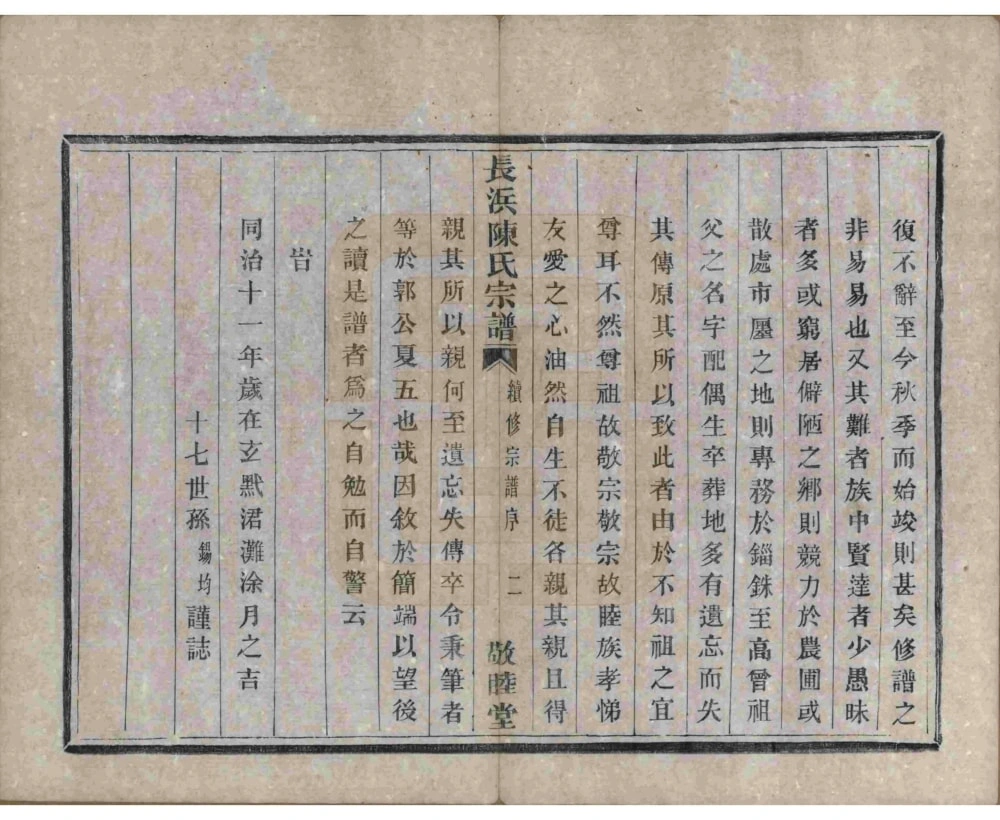 復不辭至今秋季而始竣則甚矣修譜之
非易易也又其難者族中賢達者少愚昧
者多或窮居僻陋之鄉則競力於農圃或
散處市廛之地則專務於錙銖至高曾祖
父之名字配偶生卒葬地多有遺忘而失
其傳原其所以致此者由於不知祖之宜
尊耳不然尊祖故敬宗敬宗故睦族孝悌
友愛之心油然自生不徒各親其親且得
長浜陳氏宗譜 續修宗譜序 二 敬睦堂
親其所以親何至遺忘失傳卒令秉筆者
等於郭公夏五也哉因敘於簡端以望後
之讀是譜者為之自勉而自警云
旹
同治十一年歲在玄黓涒灘涂月之吉
十七世孫錫均謹誌